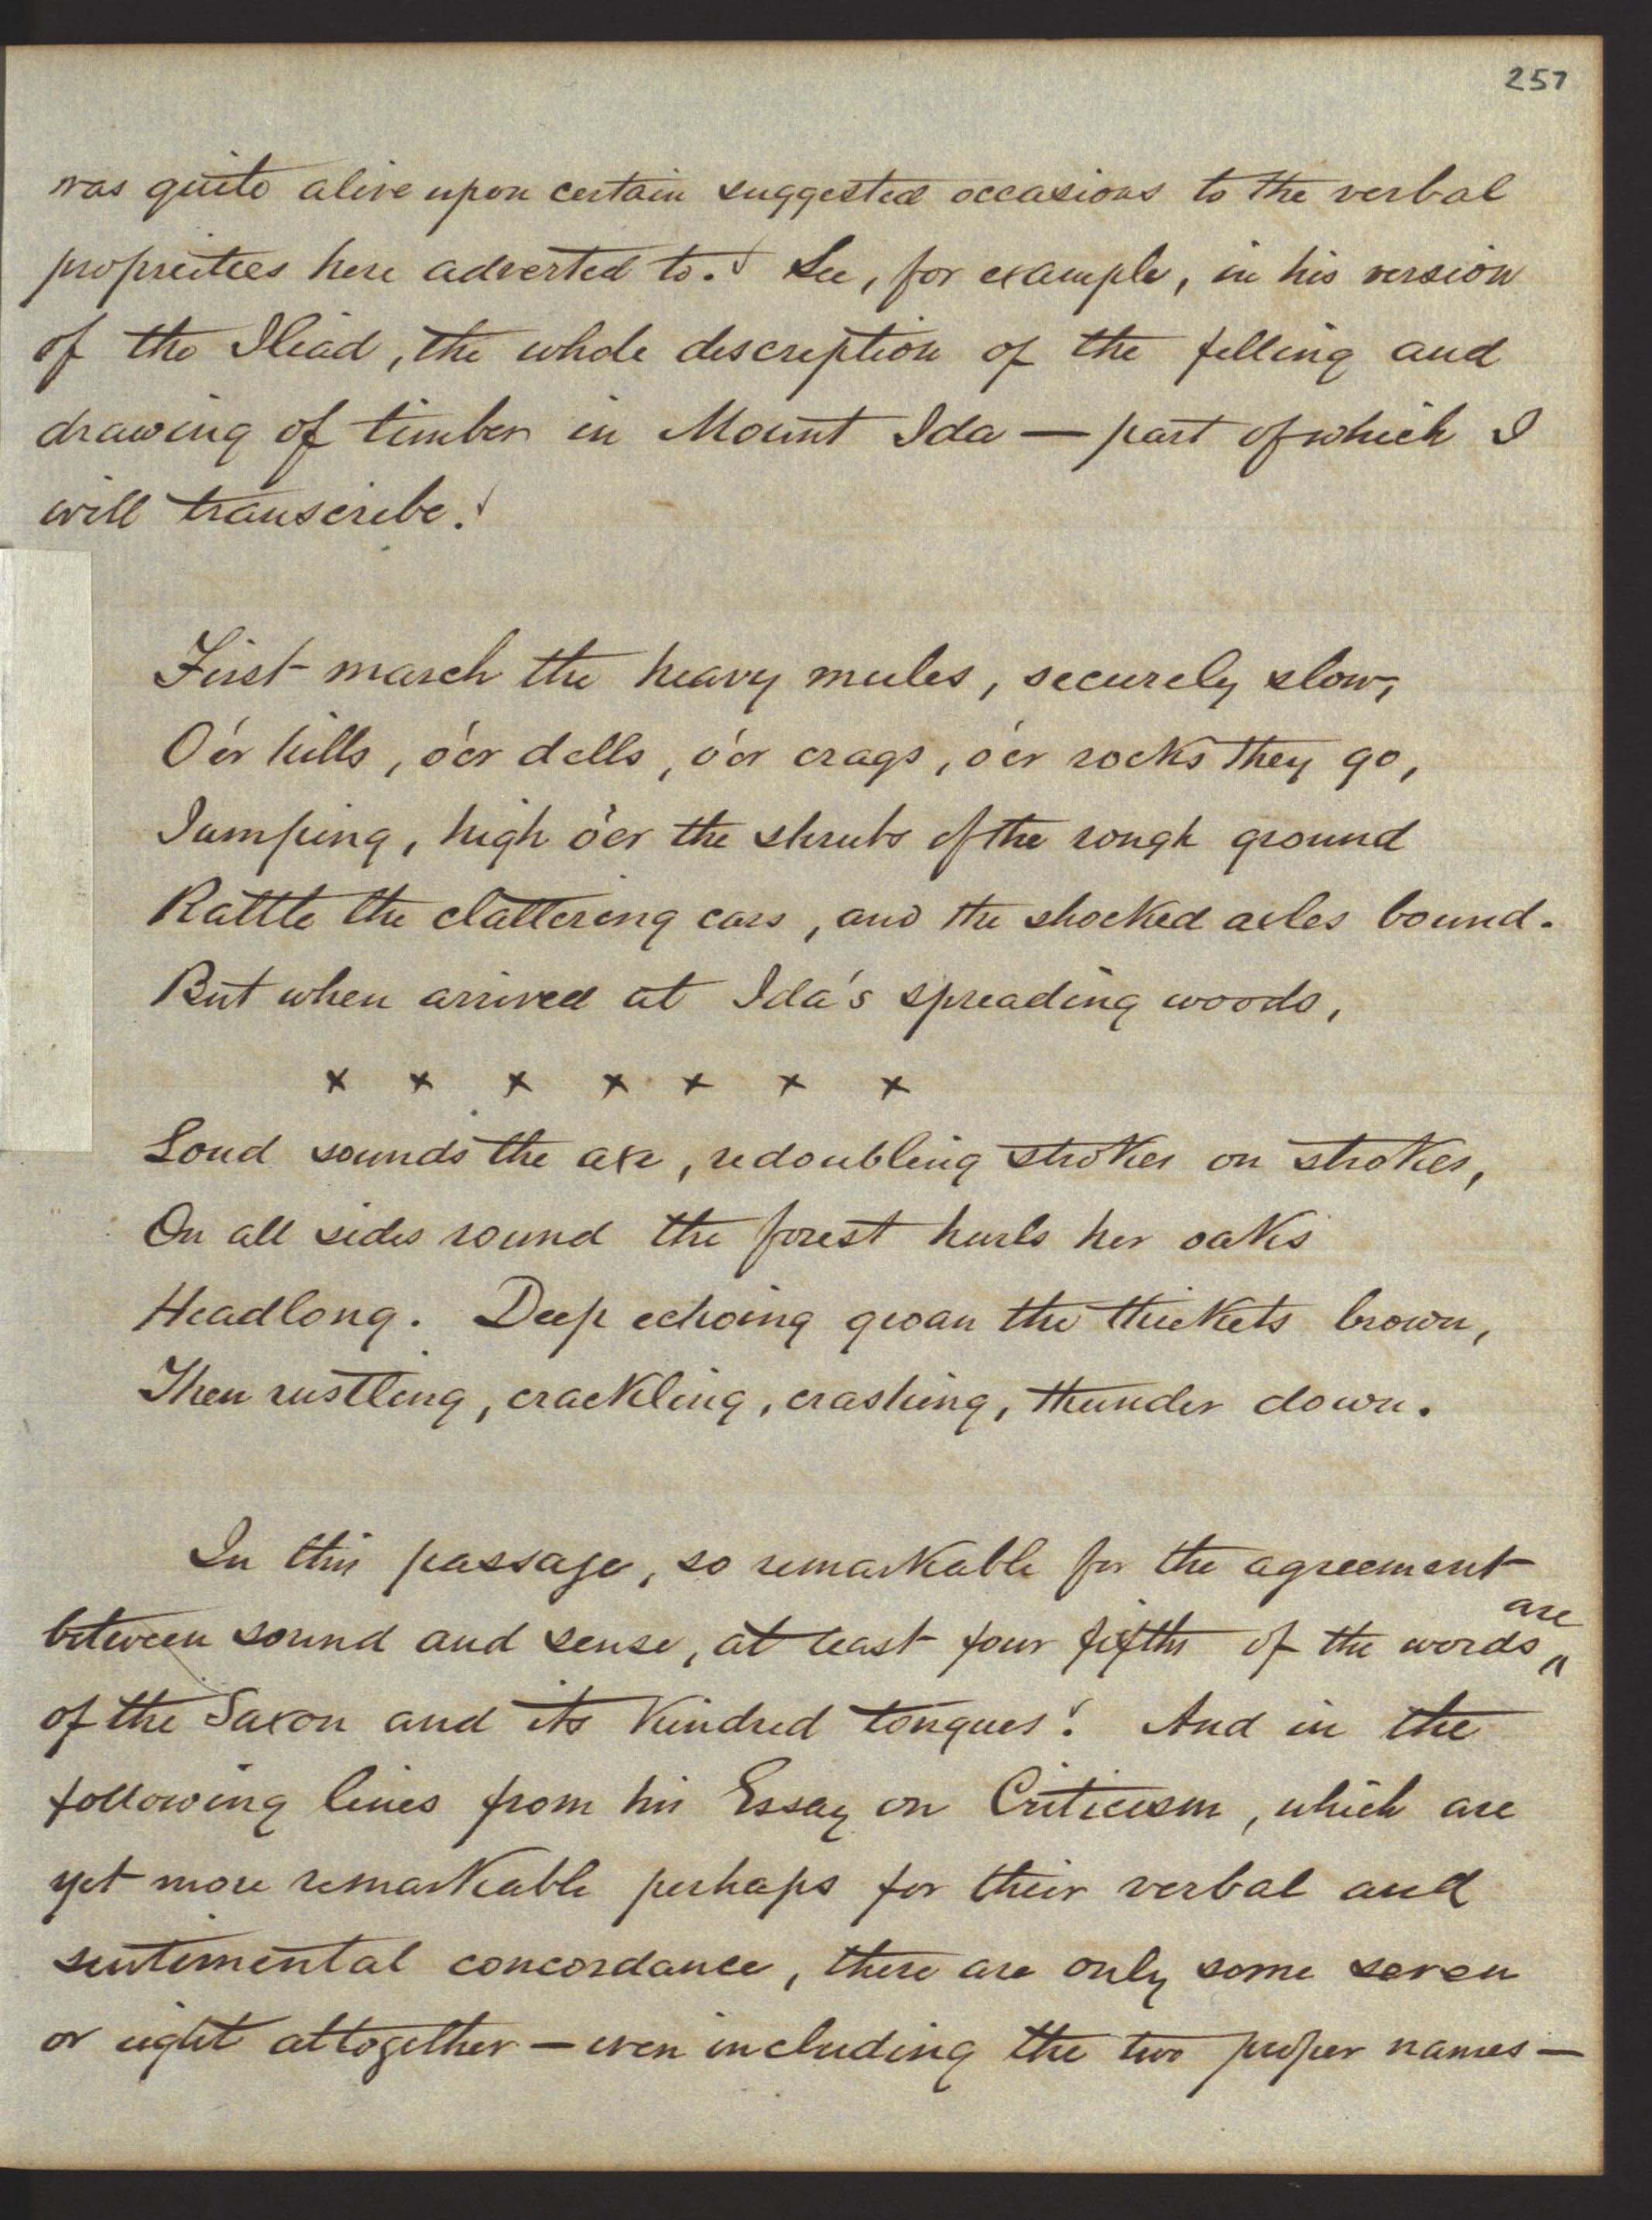 257
was quite alive upon certain suggested occasions to the verbal
proprieties here adverted to. See, for example, in his version
of the Iliad, the whole description of the felling and
drawing of timber in Mount Ida — part of which I
will transcribe.
First march the heavy mules, securely slow,
O'er hills, o'er dells, o'er crags, o'er rocks they go,
Jumping, high o'er the shrubs of the rough ground
Rattle the clattering cars, and the shocked axles bound.
But when arrived at Ida's spreading woods,
x x x x x x x
Loud sounds the axe, redoubling strokes on strokes,
On all sides round the forest hurls her oaks
Headlong. Deep echoing groan the thickets brown,
Then rustling, crackling, crashing, thunder down.
In this passage, so remarkable for the agreement
are
between sound and sense, at least four fifths of the words
of the Saxon and its kindred tongues. And in the
following lines from his Essay on Criticism, which are
yet more remarkable perhaps for their verbal and
sentimental concordance, there are only some seven
or eight altogether — even including the two proper names —